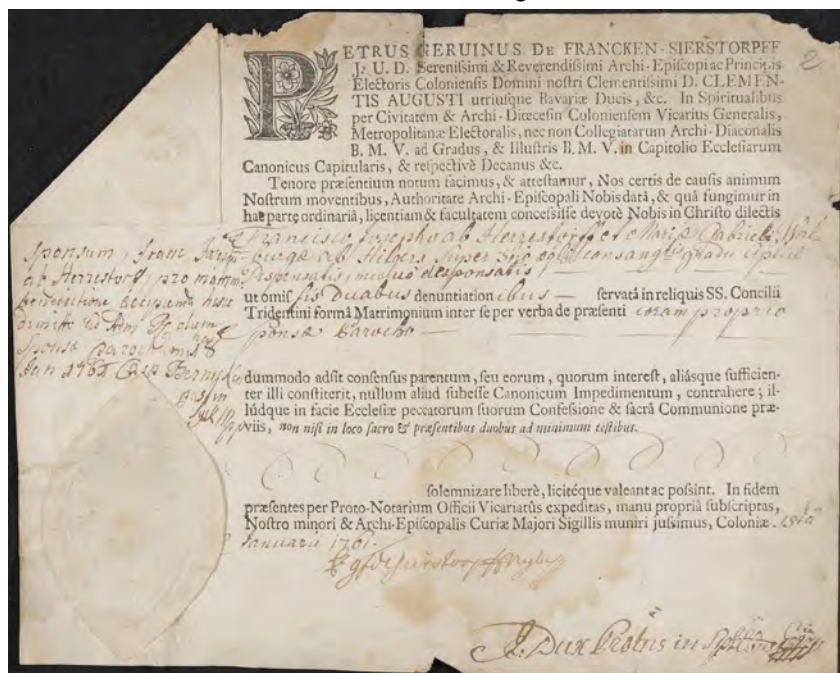 2
PETRUS GERUINUS DE FRANCKEN-SIERSTORPFF
J. U. D. Sereniſſimi & Reverendiſſimi Archi-Epiſcopi ac Principis
Electoris Colonienſis Domini noſtri Clementiſſimi D. CLEMEN-
TIS AUGUSTI utriuſque Bavariæ Ducis, &c. In Spiritualibus
per Civitatem & Archi-Diœceſin Colonienſem Vicarius Generalis,
Metropolitanæ Electoralis, nec non Collegiatarum Archi-Diaconalis
B. M. V. ad Gradus, & Illuſtris B. M. V. in Capitolio Eccleſiarum
Canonicus Capitularis, & reſpectivè Decanus &c.
Tenore præſentium notum facimus, & atteſtamur, Nos certis de cauſis animum
Noſtrum moventibus, Authoritate Archi-Epiſcopali Nobis datâ, & quâ fungimur in
hac parte ordinariâ, licentiam & facultatem conceſſiſſe devotè Nobis in Chriſto dilectis
Francisco Josepho ab Herrestorff et Mariæ Gabrieli Wal-
burgæ ab Hilgers super gradu
Dispensatis, desponsatis
ut omiſ sis Duabus denuntiation ibus — ſervatâ in reliquis SS. Concilii
Tridentini formâ Matrimonium inter ſe per verba de præſenti coram proprio
sponsæ Parocho —
sponsum, Franc
ab Herrestorff, pro
hisce
dimitto ad
sponsæ parochum 18
Jan 1761
dummodo adſit conſenſus parentum, ſeu eorum, quorum intereſt, aliásque ſufficien-
ter illi conſtiterit, nullum aliud ſubeſſe Canonicum Impedimentum, contrahere; il-
lúdque in facie Eccleſiæ peccatorum ſuorum Confeſſione & ſacrâ Communione præ-
viis, non niſi in loco ſacro & præſentibus duobus ad minimum teſtibus.
ſolemnizare liberè, licitéque valeant ac poſſint. In fidem
præſentes per Proto-Notarium Officii Vicariatûs expeditas, manu propriâ ſubſcriptas,
Noſtro minori & Archi-Epiſcopalis Curiæ Majori Sigillis muniri juſſimus, Coloniæ.
Januarii 1761.
J. Dux Protnris in